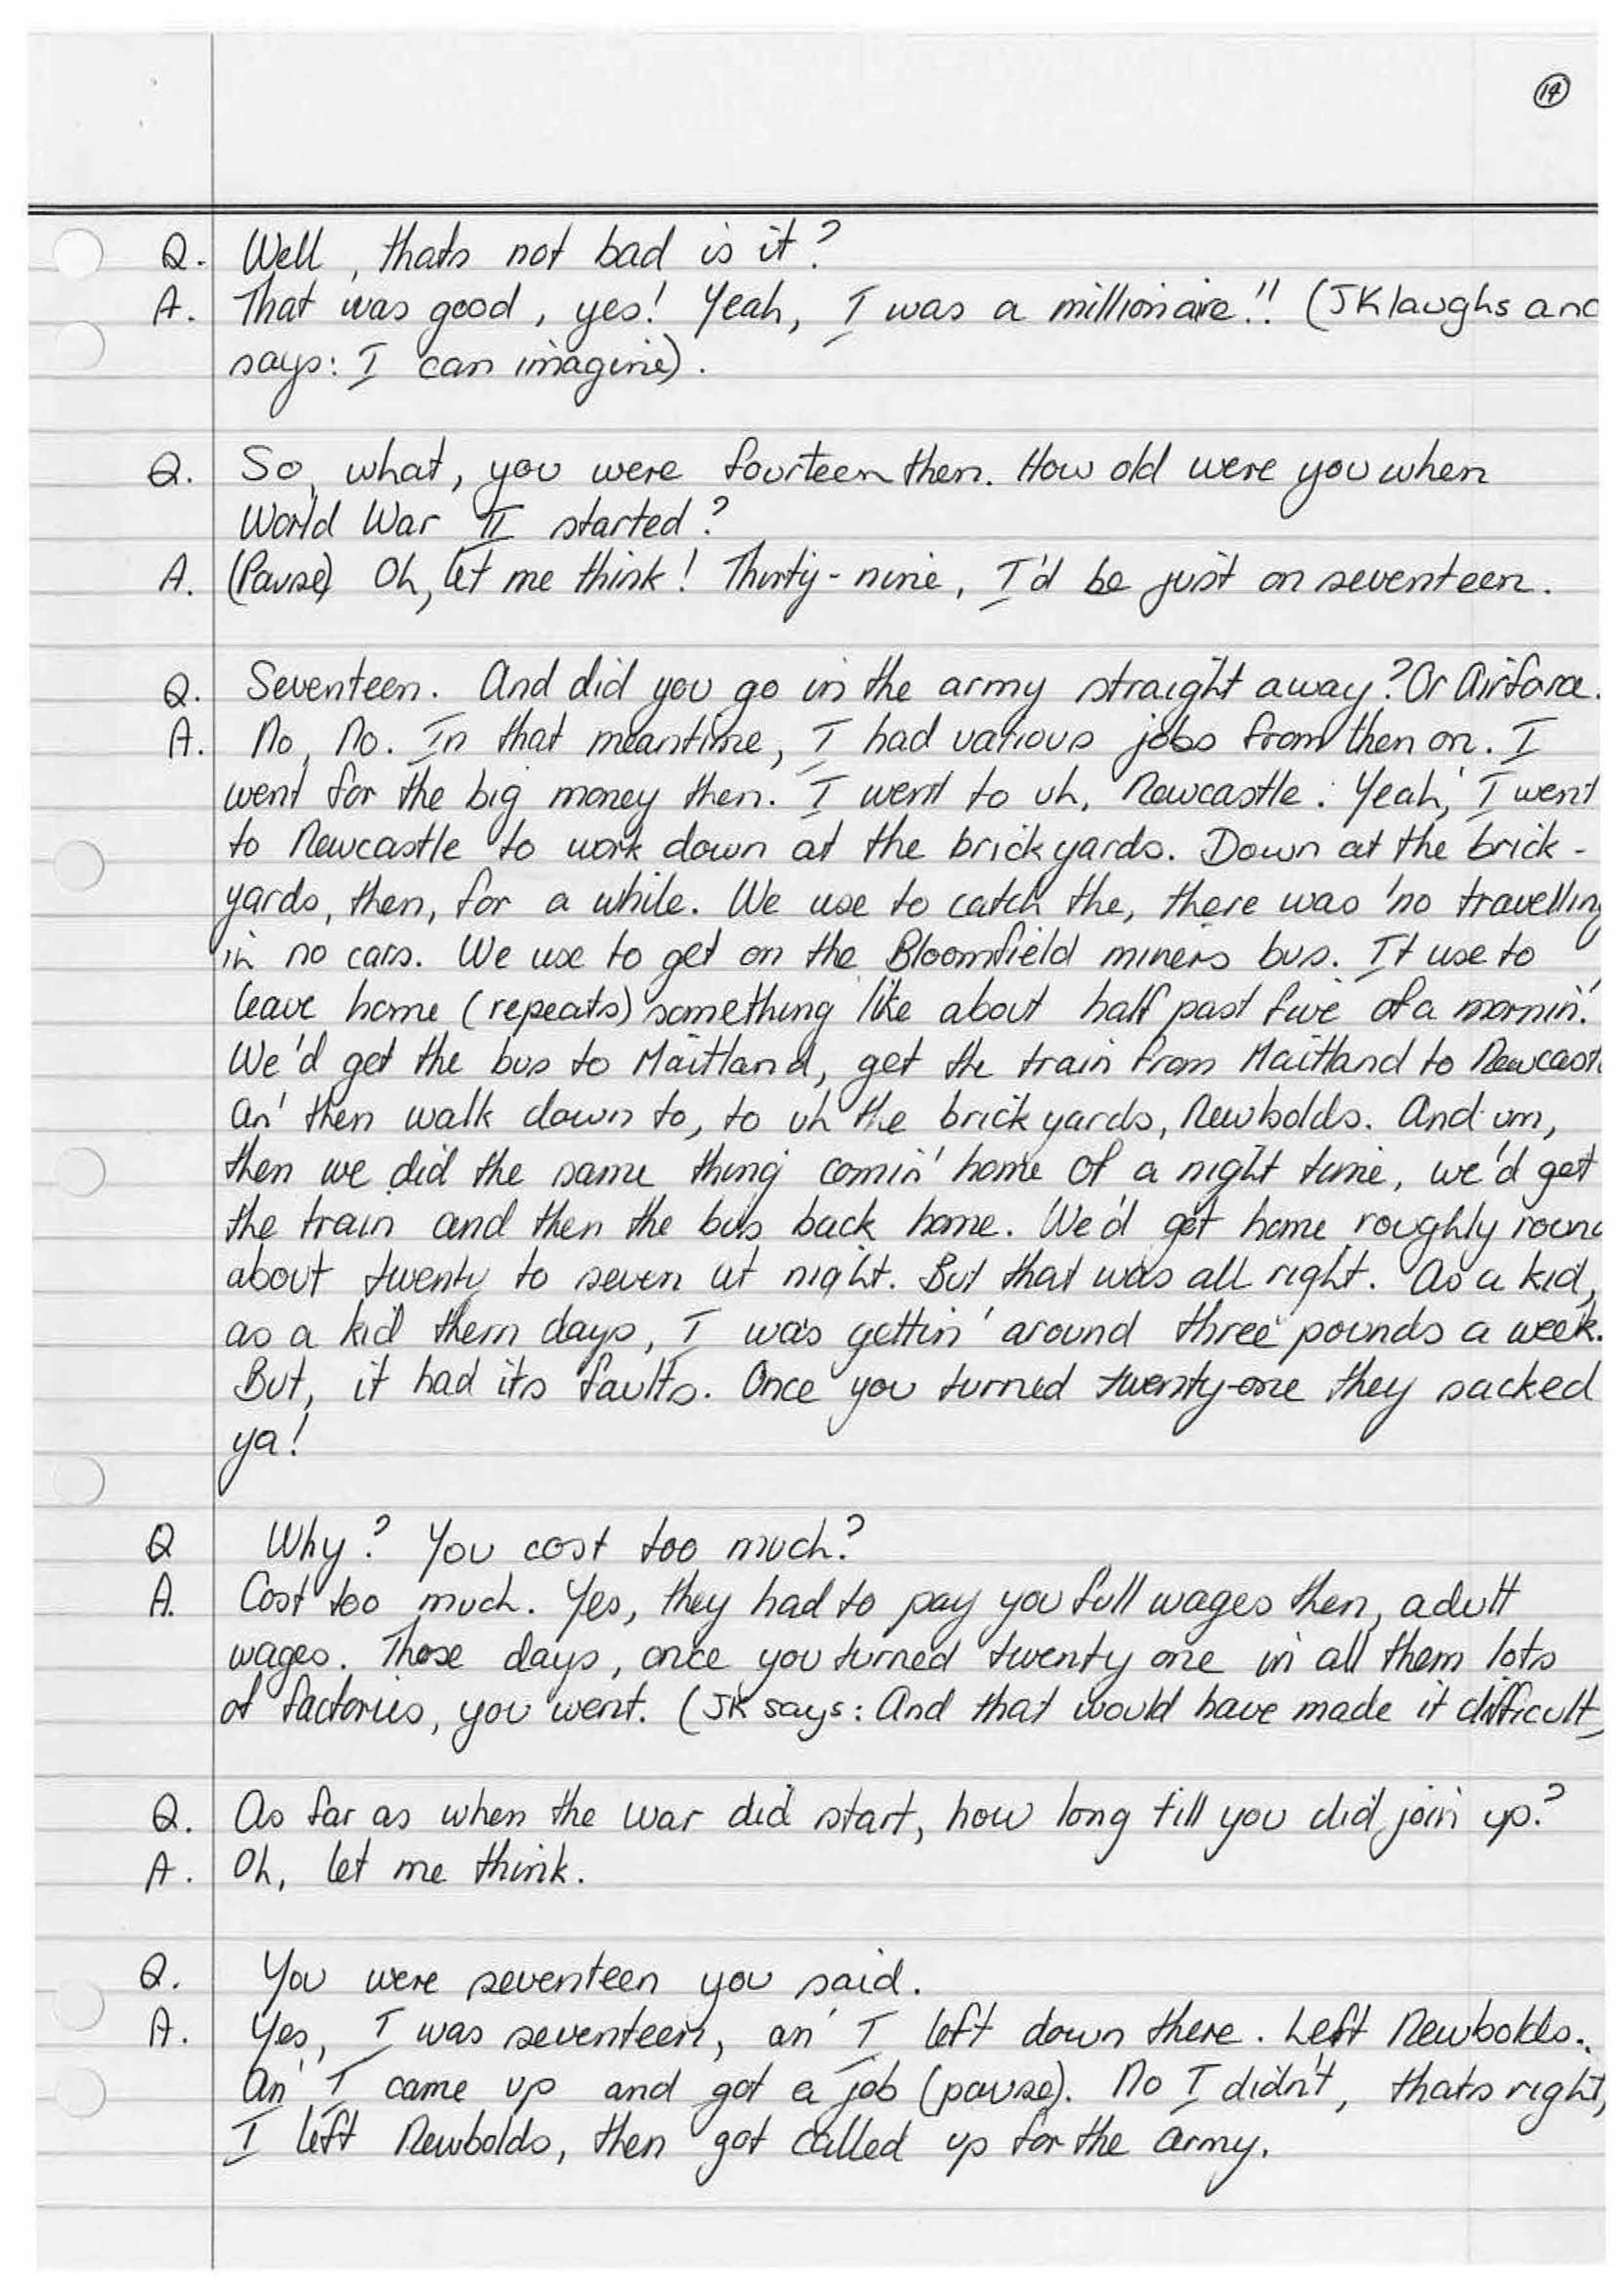 14
Q. Well, thats not bad is it?
A. That was good, yes! Yeah, I was a millionaire!! (JK laughs and
says: I can imagine).
Q. So, what, you were fourteen then. How old were you when
World War II started?
A. (Pause) Oh, let me think! Thirty-nine, I'd be just on seventeen.
Q. Seventeen. And did you go in the army straight away? Or Airforce.
A. No, No. In that meantime, I had various jobs from then on. I
went for the big money then. I went to uh, Newcastle. Yeah, I went
to Newcastle to work down at the brick yards. Down at the brick-
yards, then, for a while. We use to catch the, there was no travelling
in no cars. We use to get on the Bloomfield miners bus. It use to
leave home (repeats) something like about half past five of a mornin'.
We'd get the bus to Maitland, get the train from Maitland to Newcastl
an' then walk down to, to uh the brick yards, Newbolds. And um,
then we did the same thing comin' home of a night time, we'd get
the train and then the bus back home. We'd get home roughly roun
about twenty to seven at night. But that was all right. As a kid,
as a kid them days, I was gettin' around three pounds a week.
But, it had its faults. Once you turned twenty-one they sacked
ya!
Q Why? You cost too much?
A. Cost too much. Yes, they had to pay you full wages then, adult
wages. Those days, once you turned twenty one in all them lots
of factories, you went. (JK says: And that would have made it difficult)
Q. As far as when the war did start, how long till you did join up?
A. Oh, let me think.
Q. You were seventeen you said.
A. Yes, I was seventeen, an' I left down there. Left Newbolds.
An' I came up and got a job (pause). No I didn't, thats right,
I left Newbolds, then got called up for the army.